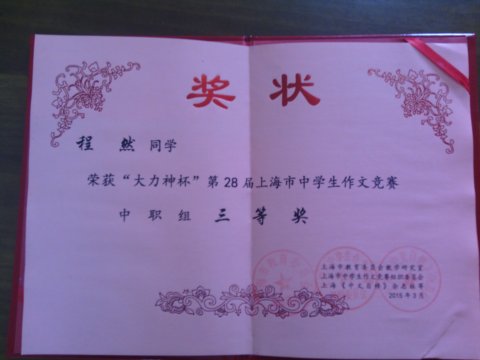 奖状
程然 同学
荣获“大力神杯”第28届上海市中学生作文竞赛
中职组 三等奖
上海市教育委员会教学研究室
上海市中学生作文竞赛组织委员会
上海《中文自修》杂志社等
2015年3月